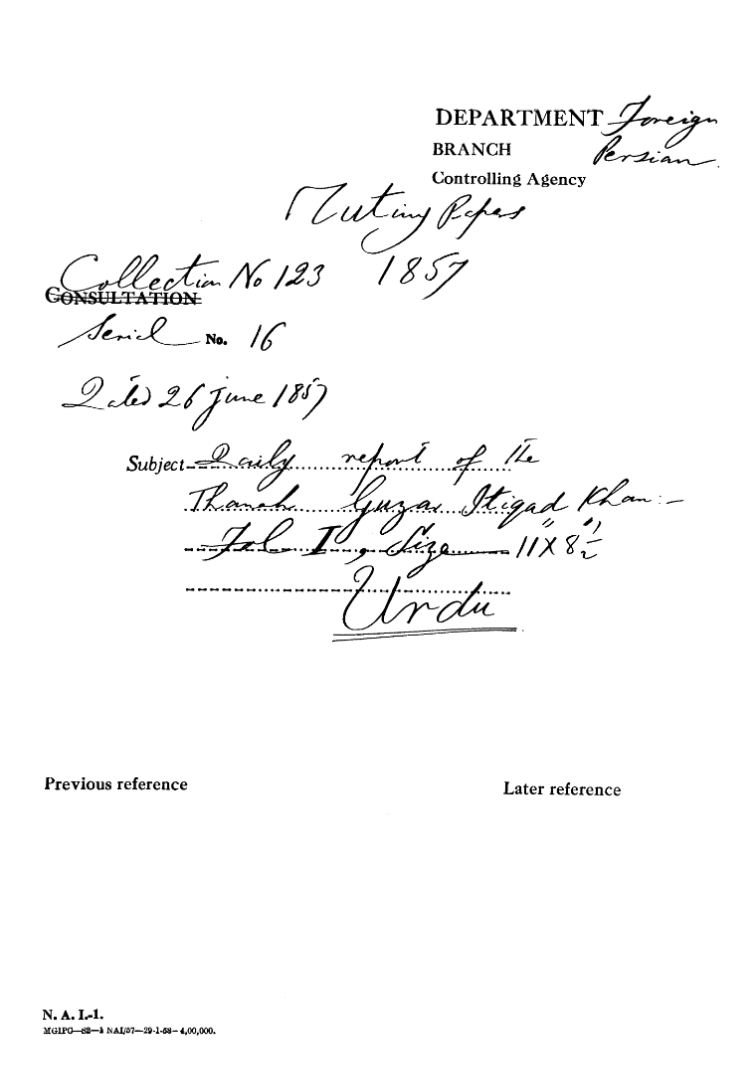 DEPARTMENT Foreign
BRANCH Persian.
Controlling Agency
Mutiny Papers
Collection No 123 1857
CONSULTATION
Serial No. 16
Dated 26 June 1857
Subject Daily report of the
Thanah Guzar Itiqad Khan:-
Fol I, Size 11" X 8½"
Urdu
Previous reference Later reference
N. A. I.-1.
MGIPC—S2—1 NAI/57—29-1-58—4,00,000.